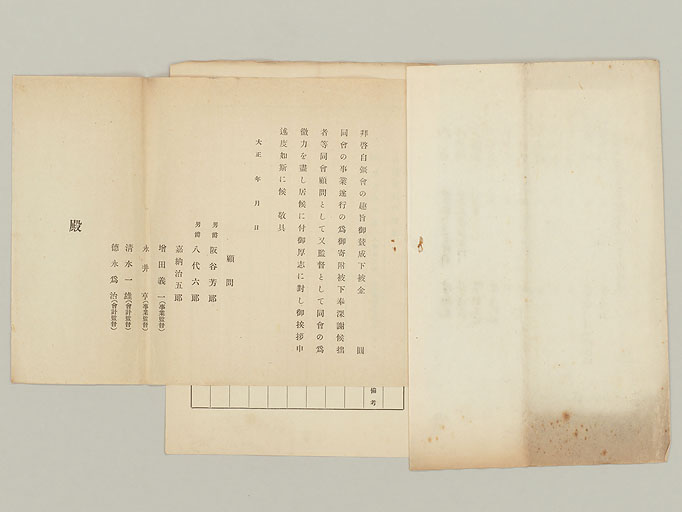 拜啓自彊會の趣旨御賛成下被金　圓
同會の事業遂行の爲御寄附被下奉深謝候拙
者等同會顧問として又監督として同會の爲
微力を盡し居候に付御厚志に對し御挨拶申
述度如斯に候 敬具
大正　年　月　日
顧問
男爵 阪谷芳郎
男爵 八代六郎
嘉納治五郎
增田義一（事業監督）
永井亨（事業監督）
清水一雄（會計監督）
德永爲治（會計監督）
殿
備考